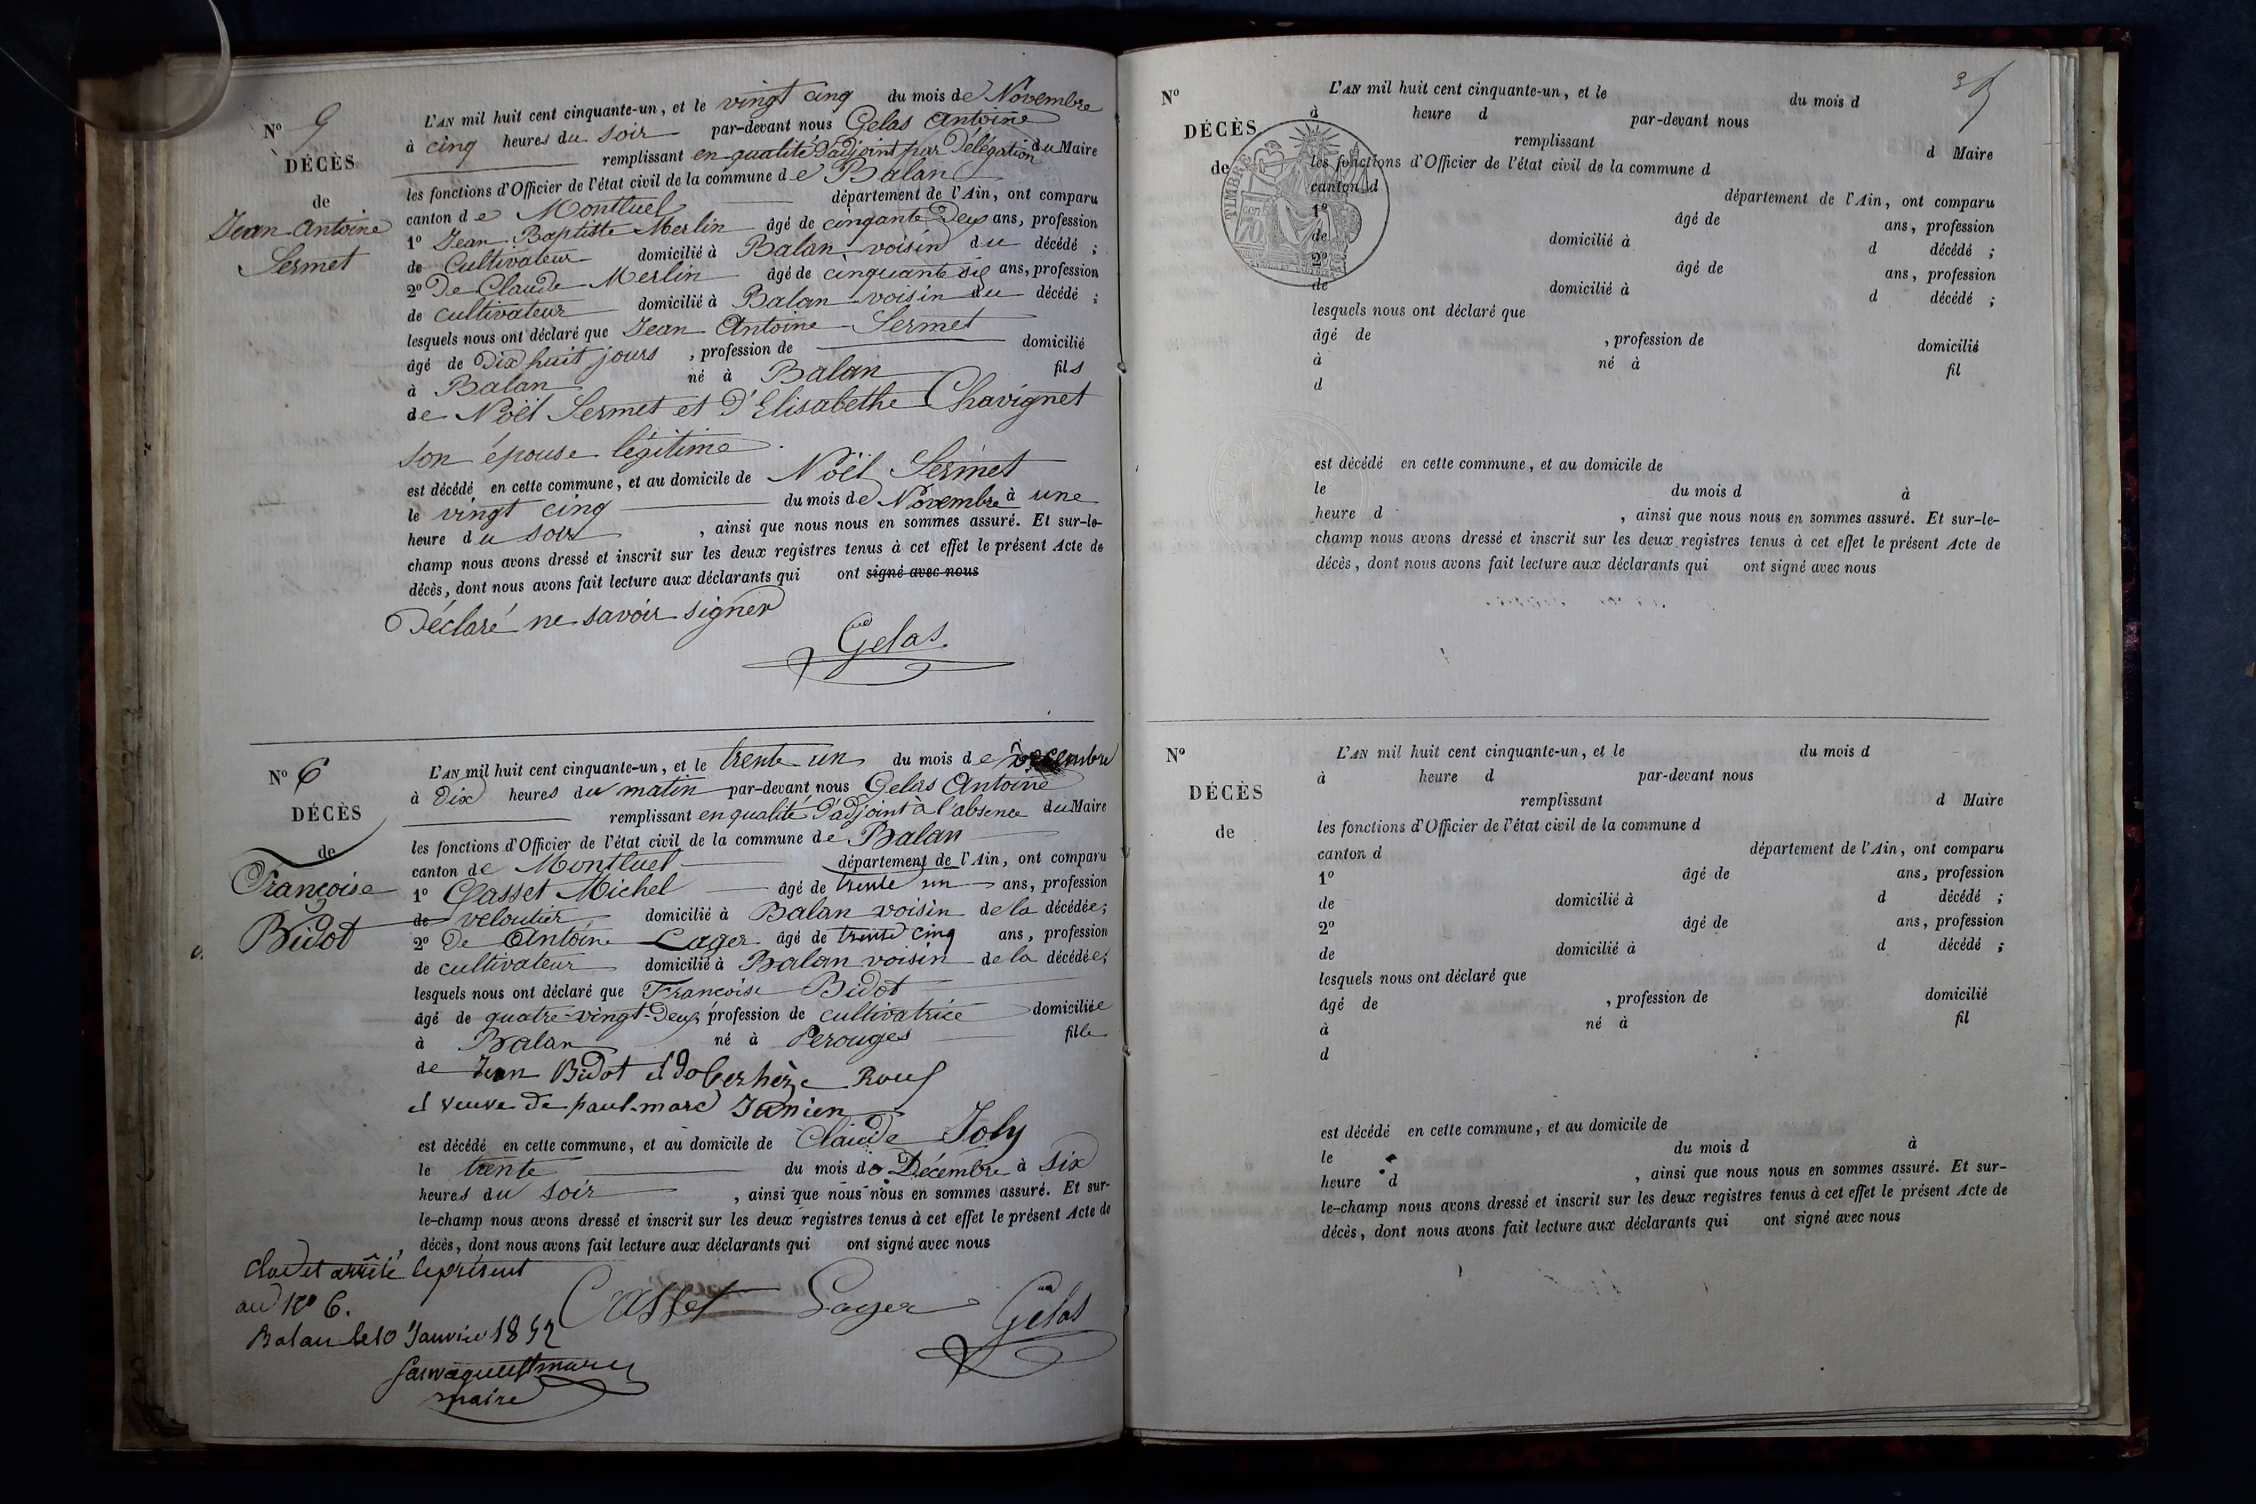 N° 9
DÉCÈS
de
Jean Antoine
Sermet
L'AN mil huit cent cinquante-un, et le vingt cinq du mois de Novembre
à cinq heures du soir par-devant nous Gelas Antoine
remplissant en qualité d'adjoint par Délégation du Maire
les fonctions d'Officier de l'état civil de la commune de Balan
canton de Montluel département de l'Ain, ont comparu
1° Jean Baptiste Merlin âgé de cinquante Deux ans, profession
de Cultivateur domicilié à Balan voisin du décédé ;
2° De Claude Merlin âgé de cinquante six ans, profession
de cultivateur domicilié à Balan voisin du décédé ;
lesquels nous ont déclaré que Jean Antoine Sermet
âgé de Dix huit jours , profession de domicilié
à Balan né à Balan fils
de Noël Sermet et D'Elisabethe Chavignet
son épouse légitime.
est décédé en cette commune, et au domicile de Noël Sermet
le vingt cinq du mois de Novembre à une
heure du soir , ainsi que nous nous en sommes assuré. Et sur-le-
champ nous avons dressé et inscrit sur les deux registres tenus à cet effet le présent Acte de
décès, dont nous avons fait lecture aux déclarants qui ont signé avec nous
Déclaré ne savoir signer
Gelas
N° 6
DÉCÈS
de
Françoise
Bidot
L'AN mil huit cent cinquante-un, et le trente un du mois de Decembre
à Dix heures du matin par-devant nous Gelas Antoine
remplissant en qualité d'adjoint à l'absence du Maire
les fonctions d'Officier de l'état civil de la commune de Balan
canton de Montluel département de l'Ain, ont comparu
1° Casset Michel âgé de trente un ans, profession
de veloutier domicilié à Balan voisin de la décédée;
2° De Antoine Lager âgé de trente cinq ans, profession
de cultivateur domicilié à Balan voisin de la décédée;
lesquels nous ont déclaré que Françoise Bidot
âgé de quatre-vingt-Deux, profession de cultivatrice domiciliée
à Balan né à Perouges fille
de Jean Bidot et Roux
et veuve de paul-marc Janien
est décédé en cette commune, et au domicile de Claude Joly
le trente du mois de Décembre à six
heures du soir , ainsi que nous nous en sommes assuré. Et sur-
le-champ nous avons dressé et inscrit sur les deux registres tenus à cet effet le présent Acte de
décès, dont nous avons fait lecture aux déclarants qui ont signé avec nous
Clos et arrêté le présent
au N° 6.
Balan le 10 Janvier 1852
Casset Lager Gelas
maire
N°
DÉCÈS
de
TIMBRE
L'AN mil huit cent cinquante-un, et le du mois d
à heure d par-devant nous
remplissant d Maire
les fonctions d'Officier de l'état civil de la commune d
canton d département de l'Ain, ont comparu
1° âgé de ans, profession
de domicilié à d décédé ;
2° âgé de ans, profession
de domicilié à d décédé ;
lesquels nous ont déclaré que
âgé de , profession de domicilié
à né à fil
d
est décédé en cette commune, et au domicile de
le du mois d à
heure d , ainsi que nous nous en sommes assuré. Et sur-le-
champ nous avons dressé et inscrit sur les deux registres tenus à cet effet le présent Acte de
décès, dont nous avons fait lecture aux déclarants qui ont signé avec nous
N°
DÉCÈS
de
L'AN mil huit cent cinquante-un, et le du mois d
à heure d par-devant nous
remplissant d Maire
les fonctions d'Officier de l'état civil de la commune d
canton d département de l'Ain, ont comparu
1° âgé de ans, profession
de domicilié à d décédé ;
2° âgé de ans, profession
de domicilié à d décédé ;
lesquels nous ont déclaré que
âgé de , profession de domicilié
à né à fil
d
est décédé en cette commune, et au domicile de
le du mois d à
heure d , ainsi que nous nous en sommes assuré. Et sur-
le-champ nous avons dressé et inscrit sur les deux registres tenus à cet effet le présent Acte de
décès, dont nous avons fait lecture aux déclarants qui ont signé avec nous